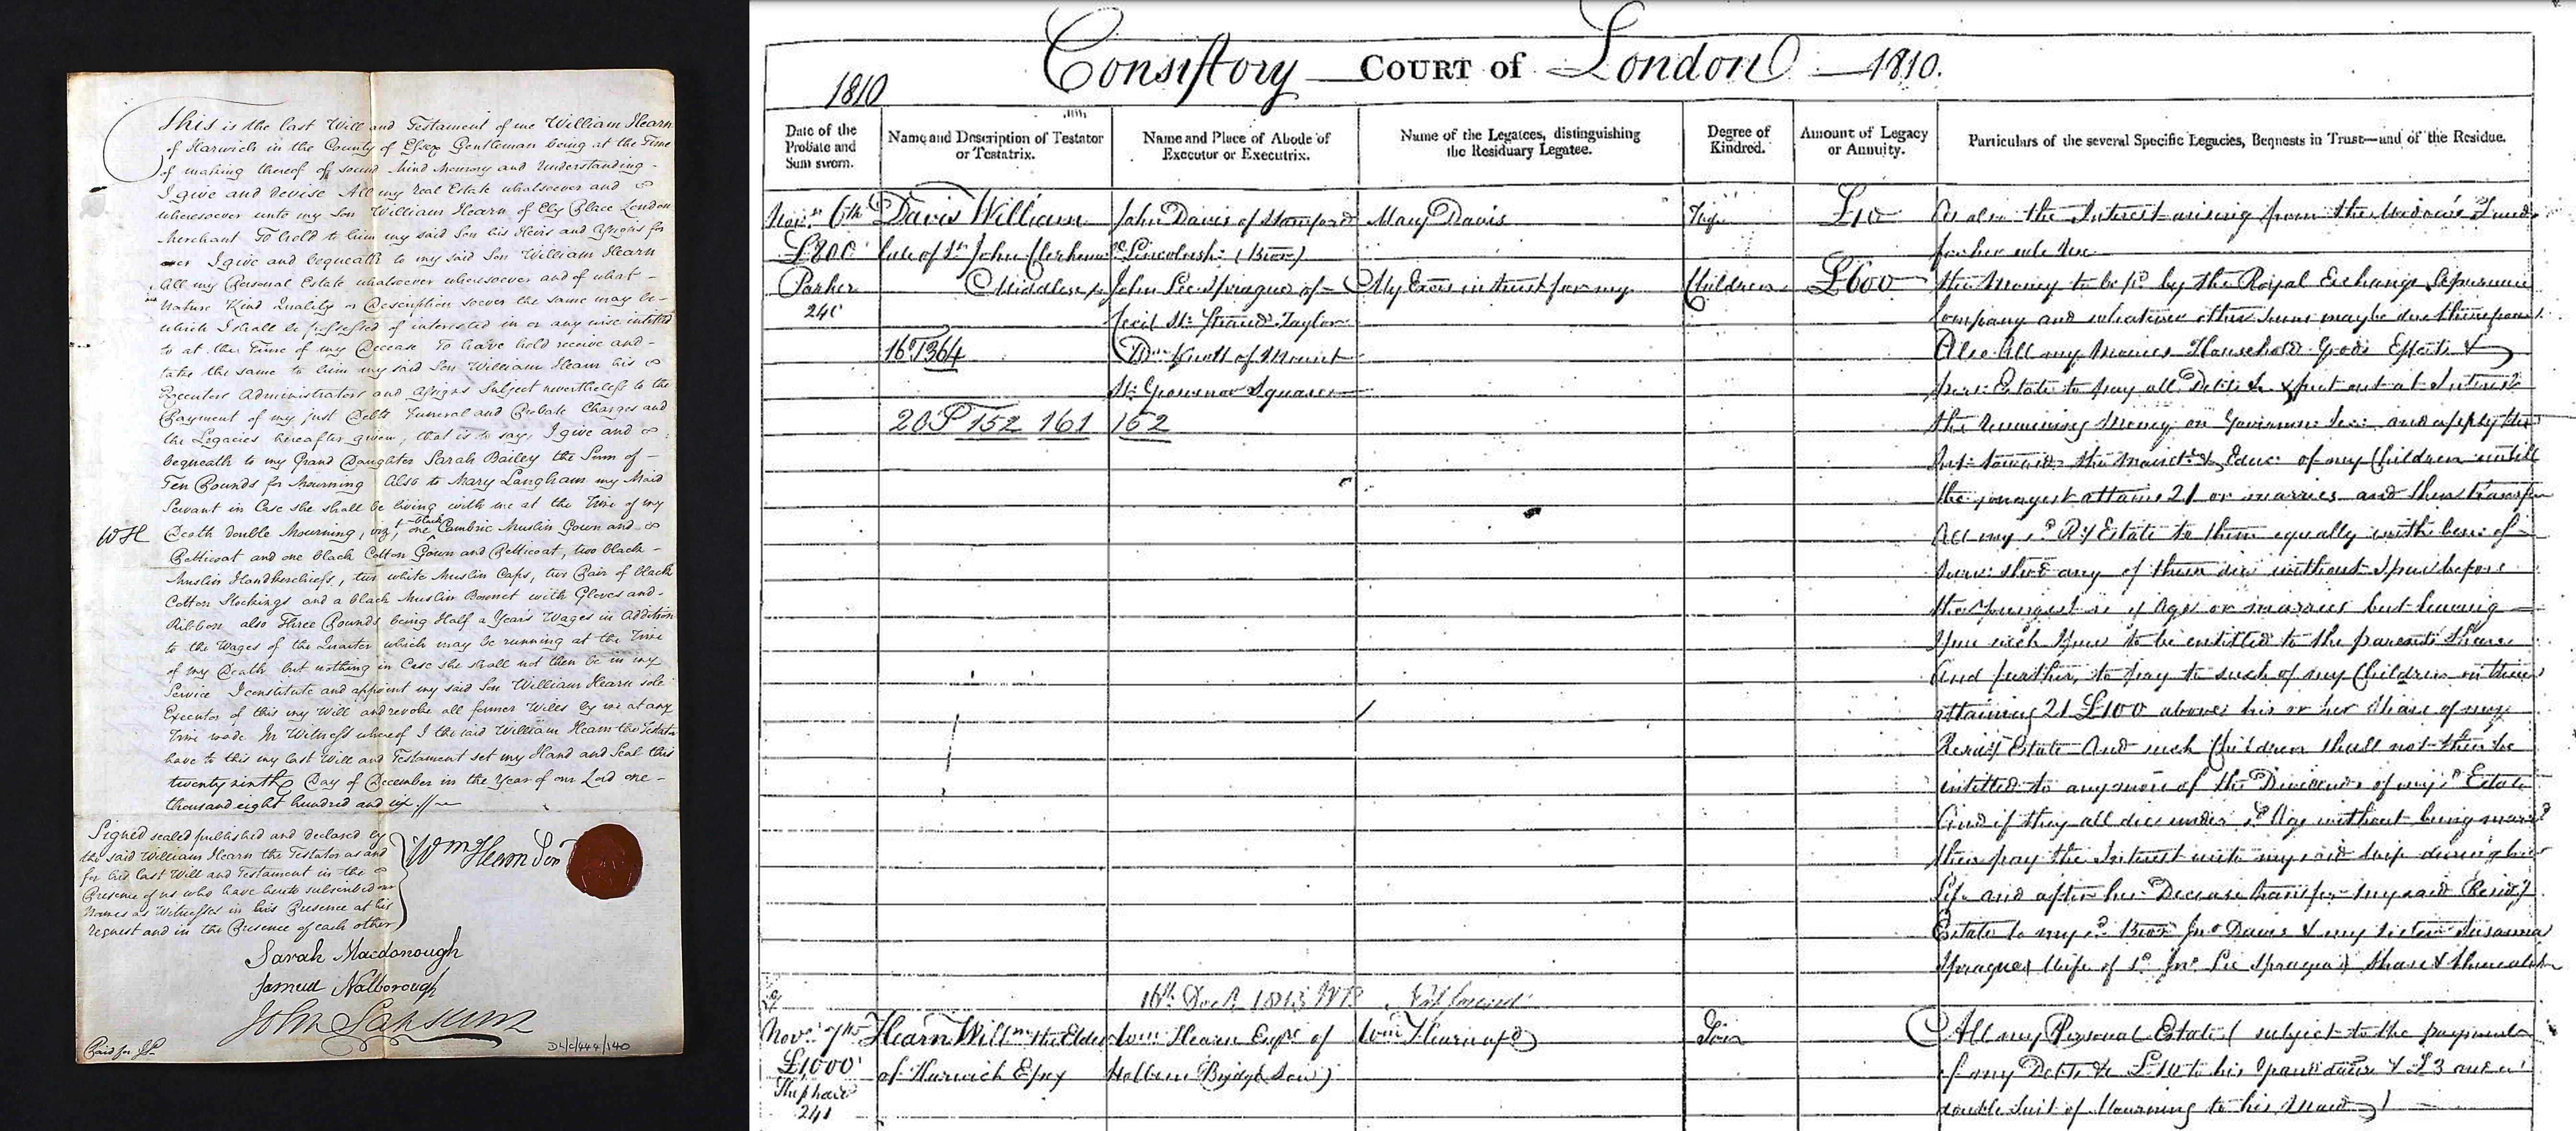 This is the last Will and Testament of me William Hearn
of Harwich in the County of Essex Gentleman being at the Time
of making thereof of sound Mind Memory and Understanding -
I give and devise All my real Estate whatsoever and
wheresoever unto my Son William Hearn of Ely Place London
Merchant To hold to him my said Son his Heirs and Assigns for
ever I give and bequeath to my said Son William Hearn
All my Personal Estate whatsoever wheresoever and of what -
Nature Kind Quality or Description soever the same may be -
which I shall be possessed of interested in or any wise intitled
to at the Time of my Decease To have hold receive and -
take the same to him my said Son William Hearn his
Executors Administrators and Assigns Subject nevertheless to the
Payment of my just Debts Funeral and Probate Charges and
the Legacies hereafter given, that is to say, I give and
bequeath to my Grand Daughter Sarah Bailey the Sum of -
Ten Pounds for Mourning Also to Mary Langham my Maid
Servant in Case she shall be living with me at the Time of my
black
WH Death double Mourning, vizt, one Cambric Muslin Gown and
Petticoat and one black Cotton Gown and Petticoat, two black -
Muslin Handkerchiefs, two white Muslin Caps, two Pair of black
Cotton Stockings and a black Muslin Bonnet with Gloves and -
Ribbon also Three Pounds being Half a Year's Wages in Addition
to the Wages of the Quarter which may be running at the Time
of my Death but nothing in Case she shall not then be in my
Service I constitute and appoint my said Son William Hearn sole
Executor of this my Will and revoke all former Wills by me at any
Time made In Witness whereof I the said William Hearn the Testator
have to this my last Will and Testament set my Hand and Seal this
twenty ninth Day of December in the Year of our Lord one -
thousand eight hundred and six
Signed sealed published and declared by
the said William Hearn the Testator as and
for his last Will and Testament in the
Presence of us who have hereto subscribed our
Names as Witnesses in his Presence at his
request and in the Presence of each other
Wm Hearn Senr
Sarah Macdonough
Samuel Nalborough
John Sansum
DL/C/444/140
Consistory COURT of London 1810.
1810
Date of the Probate and Sum sworn.
Name and Description of Testator or Testatrix.
Name and Place of Abode of Executor or Executrix.
Name of the Legatees, distinguishing the Residuary Legatee.
Degree of Kindred.
Amount of Legacy or Annuity.
Particulars of the several Specific Legacies, Bequests in Trust—and of the Residue.
Novr. 6th Davis William John Davis of Stamford Mary Davis Wife £10 As also the Interest arising from the Widow's Fund
£800 late of St John Clerkenwell Lincolnsh: (Bror) for her sole Use
Parker Middlesex John Lee Sprague of My Exors in trust for my Children £600 the Money to be pd by the Royal Exchange Assurance
240 Cecil St: Strand Taylor Company and whatever other Sums may be due thereupon
16 T 364 Wm Knott of Mount Also All my Monies Household Goods Effects &
St: Grosvenor Square pers: Estate to pay all Debts & put out at Interest
20 P 152 161 162 the remaining Money on Governmt: Sec: and apply the
Int: towards the Maintce & Educ: of my Children untill
the youngest attains 21 or marries and then transfer
All my sd Ry Estate to them equally with ben: of
Surv: shod any of them die without Issue before
the Youngest is of Age or marries but leaving
Issue such Issue to be entitled to the parents Share
And further, to pay to such of my Children on their
attaining 21 £100 above his or her Share of my
Resid: Estate And such Children shall not then be
intitled to any more of the Dividends of my sd Estate
And if they all die under sd Age without being married
then pay the Interest unto my said Wife during her
Life and after her Decease transfer my said Resid:y
Estate to my sd Bror Jno Davis & my sister Susanna
Sprague (Wife of sd Jno Lee Sprague) Share & Share alike
16th Decr. 1813
Novr. 7th Hearn Willm the Elder Wm: Hearn Esqre of Wm Hearn afsd Son All my Personal Estate (subject to the payment
£1000 of Harwich Essex Holborn Bridge (Son) of my Debts & £10 to his Grandaur & £3 and a
241 double Suit of Mourning to his Maid)